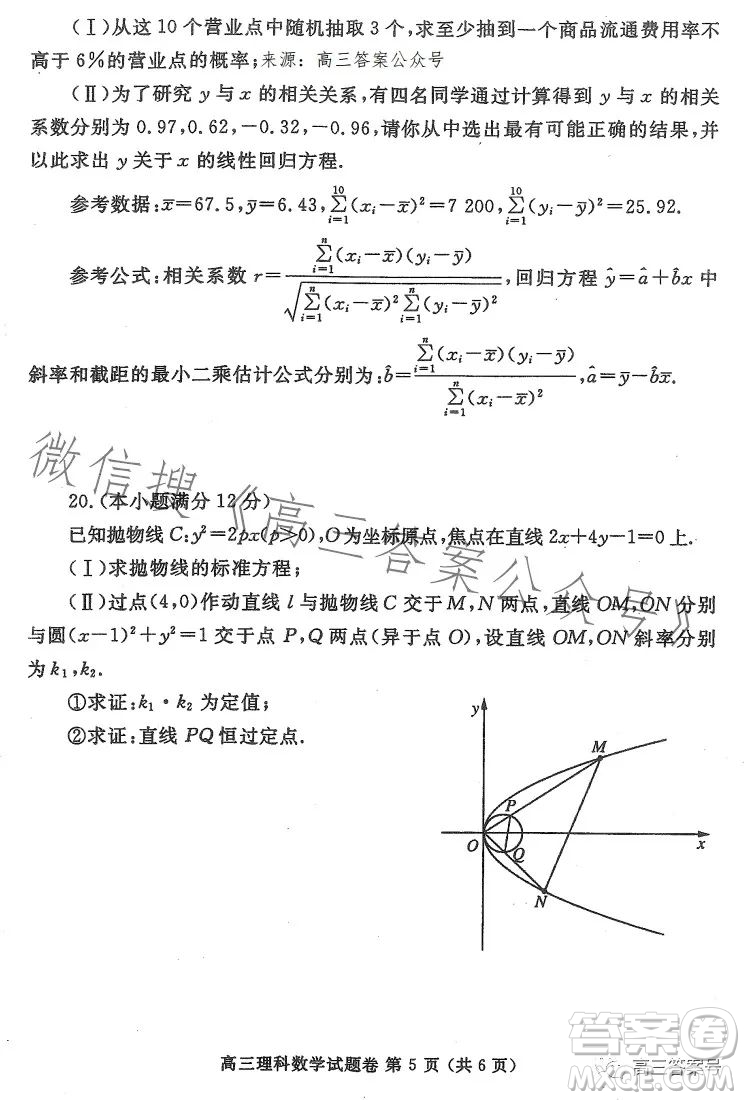 (Ⅰ)从这 10 个营业点中随机抽取 3 个,求至少抽到一个商品流通费用率不
高于 6%的营业点的概率;来源:高三答案公众号
(Ⅱ)为了研究 y 与 x 的相关关系,有四名同学通过计算得到 y 与 x 的相关
系数分别为 0.97,0.62,-0.32,-0.96,请你从中选出最有可能正确的结果,并
以此求出 y 关于 x 的线性回归方程.
参考数据:x̄=67.5,ȳ=6.43,∑_{i=1}^{10}(x_i-x̄)²=7 200,∑_{i=1}^{10}(y_i-ȳ)²=25.92.
参考公式:相关系数 r=\frac{∑_{i=1}^{n}(x_i-x̄)(y_i-ȳ)}{\sqrt{∑_{i=1}^{n}(x_i-x̄)²∑_{i=1}^{n}(y_i-ȳ)²}},回归方程 ŷ=â+b̂x 中
斜率和截距的最小二乘估计公式分别为:b̂=\frac{∑_{i=1}^{n}(x_i-x̄)(y_i-ȳ)}{∑_{i=1}^{n}(x_i-x̄)²},â=ȳ-b̂x̄.
微信搜《高三答案公众号》
20.(本小题满分 12 分)
已知抛物线 C:y²=2px(p>0),O为坐标原点,焦点在直线 2x+4y-1=0 上.
(Ⅰ)求抛物线的标准方程;
(Ⅱ)过点(4,0)作动直线 l 与抛物线 C 交于 M,N 两点,直线 OM,ON 分别
与圆(x-1)²+y²=1 交于点 P,Q 两点(异于点 O),设直线 OM,ON 斜率分别
为 k₁,k₂.
①求证:k₁·k₂ 为定值;
②求证:直线 PQ 恒过定点.
y
M
P
O
Q
x
N
高三理科数学试题卷 第 5 页 (共 6 页)
答案圈
高三答案号
MXQE.COM